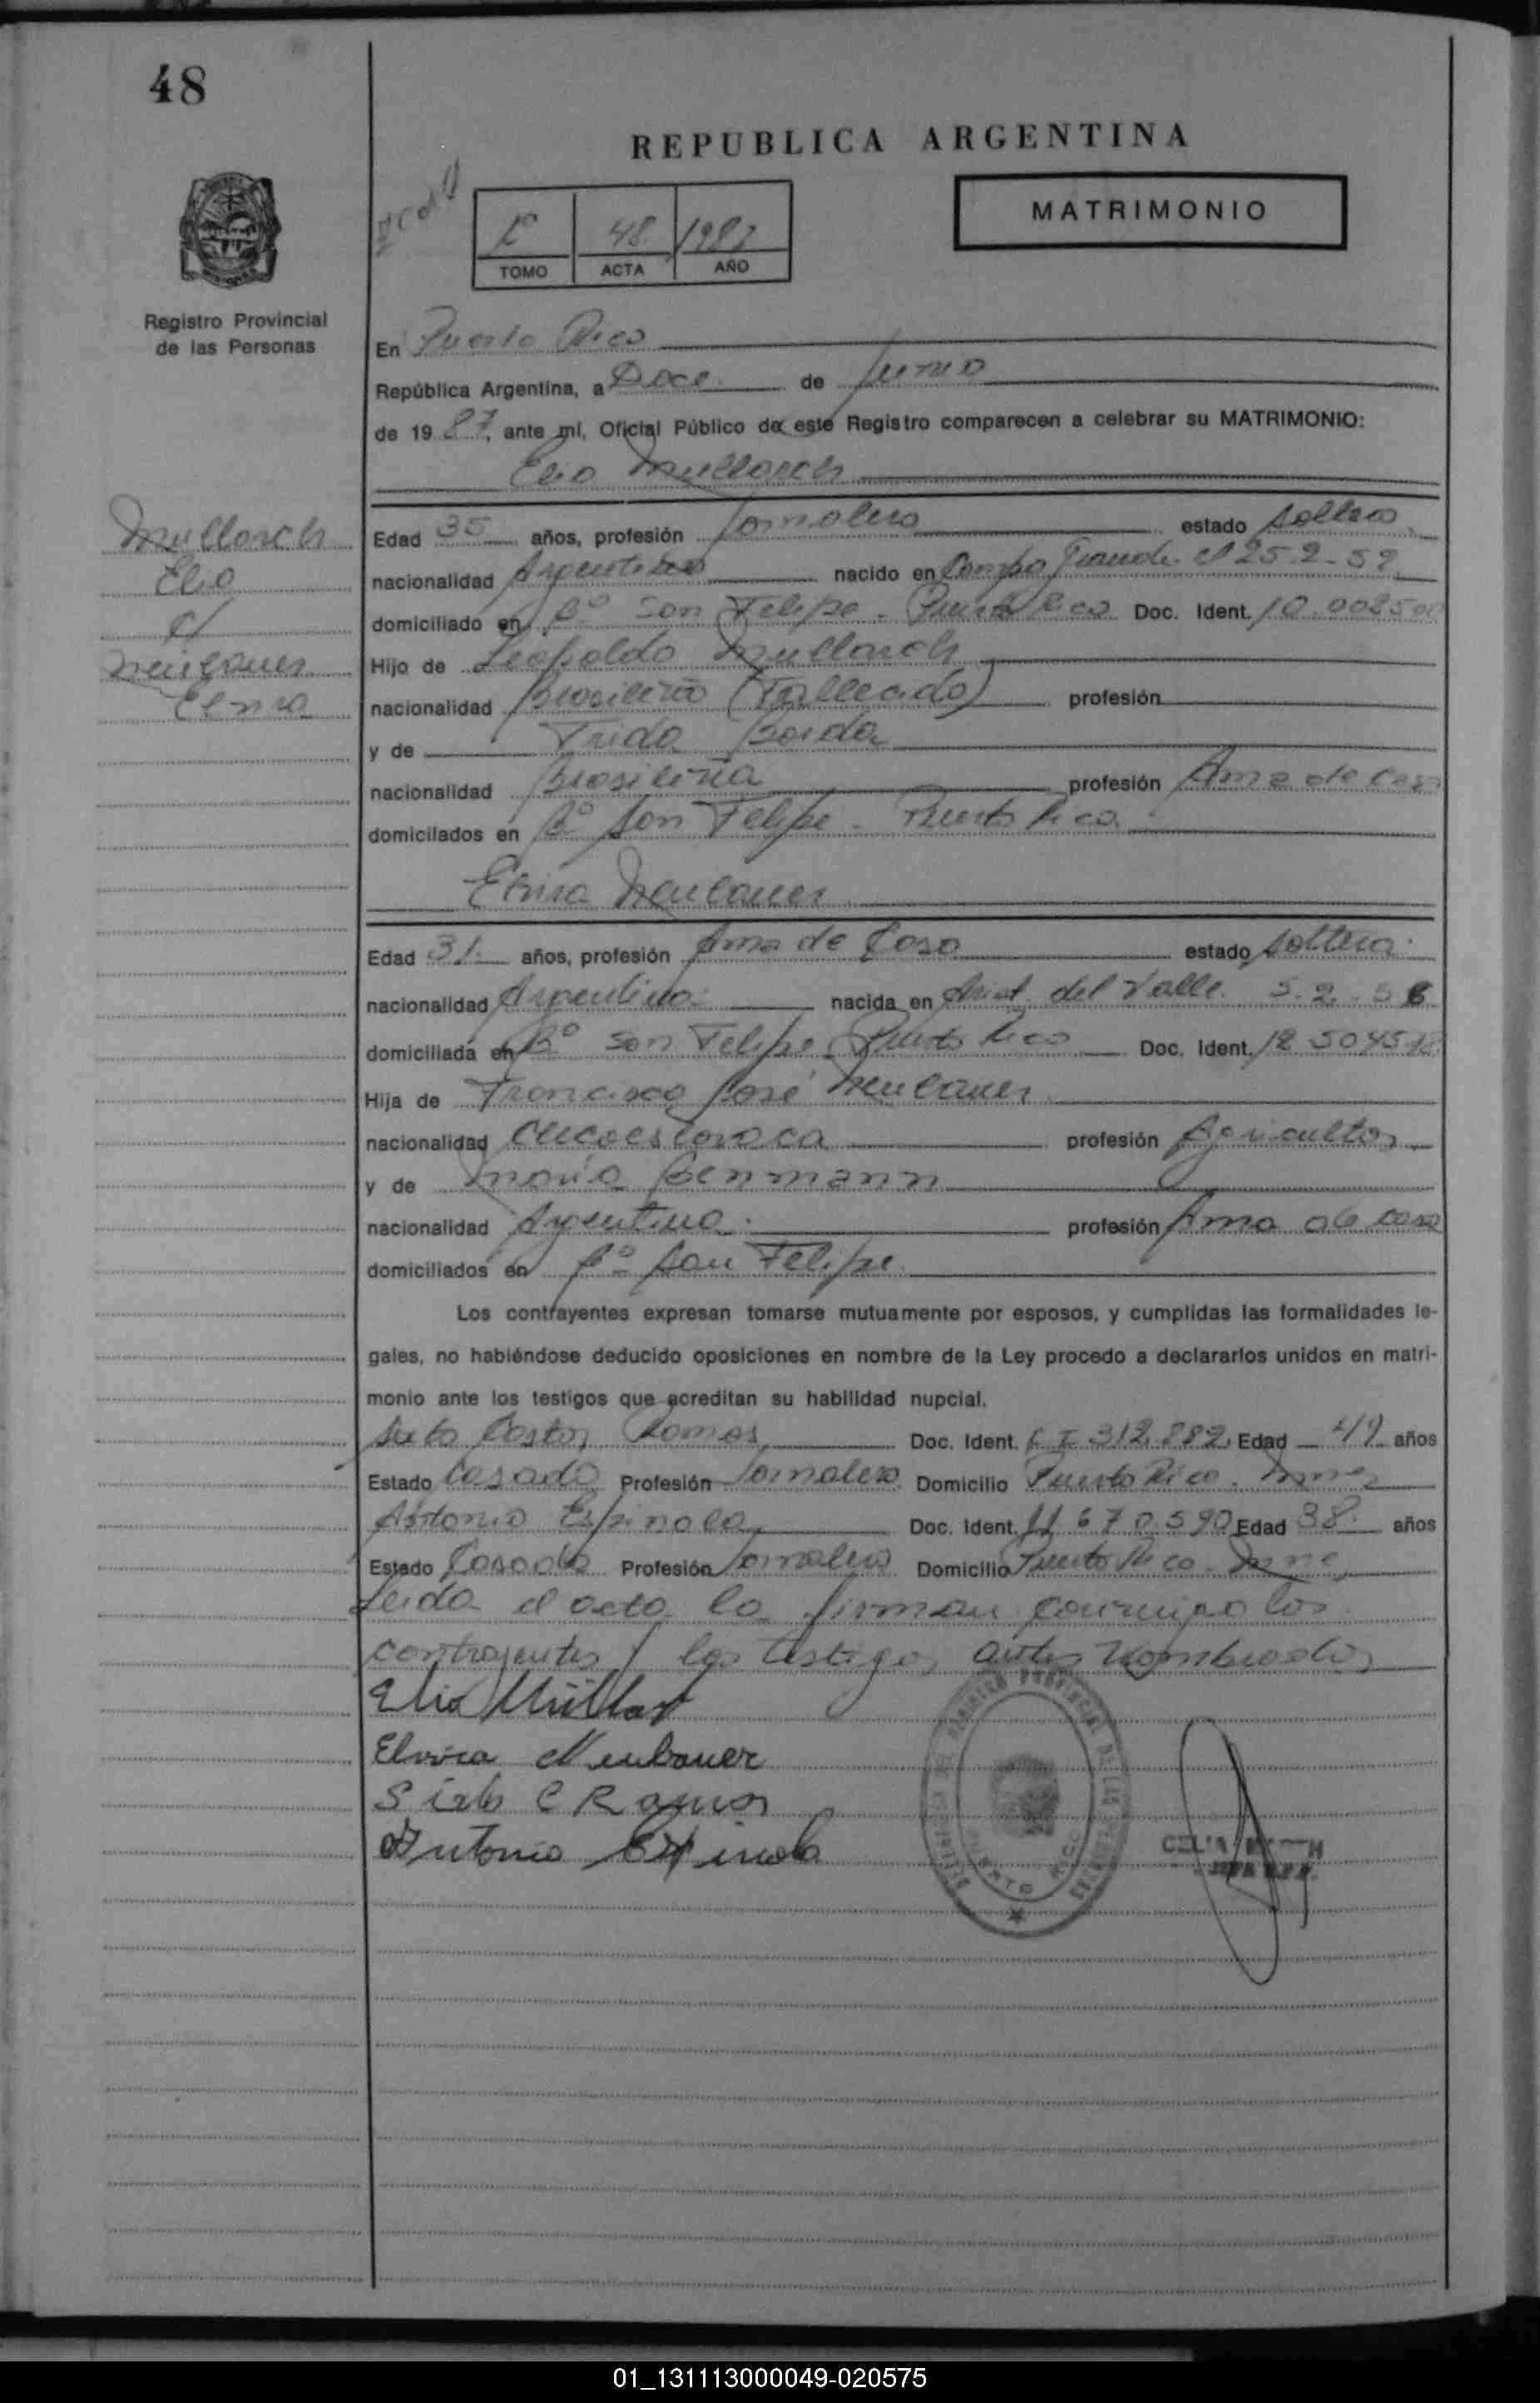 48
REPUBLICA ARGENTINA
MATRIMONIO
1º 48 1987
TOMO ACTA AÑO
Registro Provincial
de las Personas
En Puerto Rico
República Argentina, a Doce de Junio
de 19 87, ante mí, Oficial Público de este Registro comparecen a celebrar su MATRIMONIO:
Elio Mullarch
Mullorch
Elio
c/
Neubauer
Elvira
Edad 35 años, profesión Jornalero estado soltero
nacionalidad Argentino nacido en Campo Grande el 25-2-52
domiciliado en Bº San Felipe - Puerto Rico Doc. Ident. 10.008500
Hijo de Leopoldo Mullarch
nacionalidad Brasileña (Fallecido) profesión
y de Frida
nacionalidad Brasileña profesión Ama de Casa
domicilados en Bº San Felipe - Puerto Rico
Elvira Neubauer
Edad 31 años, profesión Ama de Casa estado soltera
nacionalidad Argentina nacida en Arist. del Valle 5-2-56
domiciliada en Bº San Felipe - Puerto Rico Doc. Ident. 12.5045
Hija de Francisco José Neubauer
nacionalidad Checoeslovaca profesión Agricultor
y de María
nacionalidad Argentina profesión Ama de casa
domiciliados en Bº San Felipe
Los contrayentes expresan tomarse mutuamente por esposos, y cumplidas las formalidades le-
gales, no habiéndose deducido oposiciones en nombre de la Ley procedo a declararlos unidos en matri-
monio ante los testigos que acreditan su habilidad nupcial.
Sixto Castor Ramos Doc. Ident. C I 312.882 Edad 49 años
Estado Casado Profesión Jornalero Domicilio Puerto Rico - Mnes
Antonio Espinola Doc. Ident. 11.670.590 Edad 38 años
Estado Casado Profesión Jornalero Domicilio Puerto Rico - Mnes
Leida el acta la firman conmigo los
contrayentes y los testigos antes nombrados
Elio Müllar
Elvira Neubauer
Sixto C Ramos
Antonio Espinola
PUERTO RICO
01_131113000049-020575